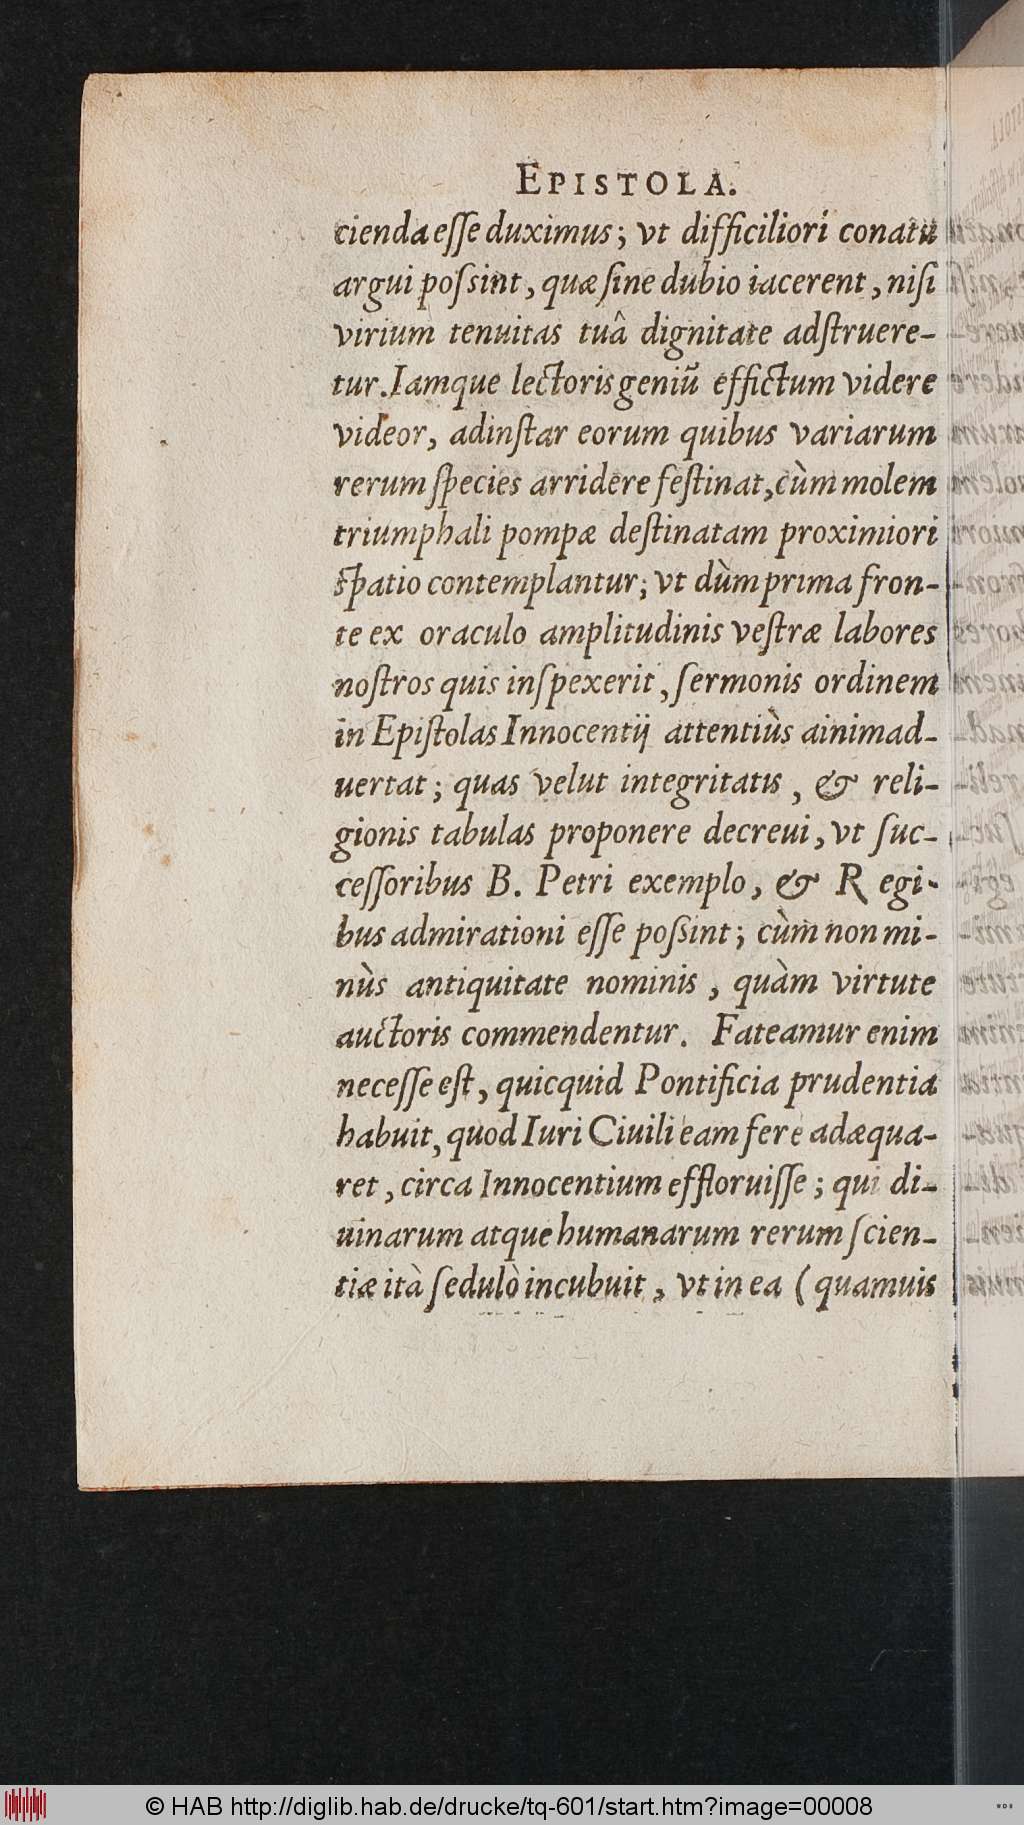 EPISTOLA.
cienda eſſe duximus; vt difficiliori conatu
argui poſsint, quæ ſine dubio iacerent, niſi
virium tenuitas tuâ dignitate adſtruere-
tur. Iamque lectoris geniū effictum videre
videor, adinſtar eorum quibus variarum
rerum ſpecies arridere feſtinat, cùm molem
triumphali pompæ deſtinatam proximiori
ſpatio contemplantur; vt dùm prima fron-
te ex oraculo amplitudinis veſtræ labores
noſtros quis inſpexerit, ſermonis ordinem
in Epiſtolas Innocentij attentiùs ainimad-
uertat; quas velut integritatis, & reli-
gionis tabulas proponere decreui, vt ſuc-
ceſſoribus B. Petri exemplo, & R egi-
bus admirationi eſſe poſsint; cùm non mi-
nùs antiquitate nominis, quàm virtute
auctoris commendentur. Fateamur enim
neceſſe eſt, quicquid Pontificia prudentia
habuit, quod Iuri Ciuili eam fere adæqua-
ret, circa Innocentium effloruiſſe; qui di-
uinarum atque humanarum rerum ſcien-
tiæ ità ſedulò incubuit, vt in ea (quamuis
© HAB http://diglib.hab.de/drucke/tq-601/start.htm?image=00008